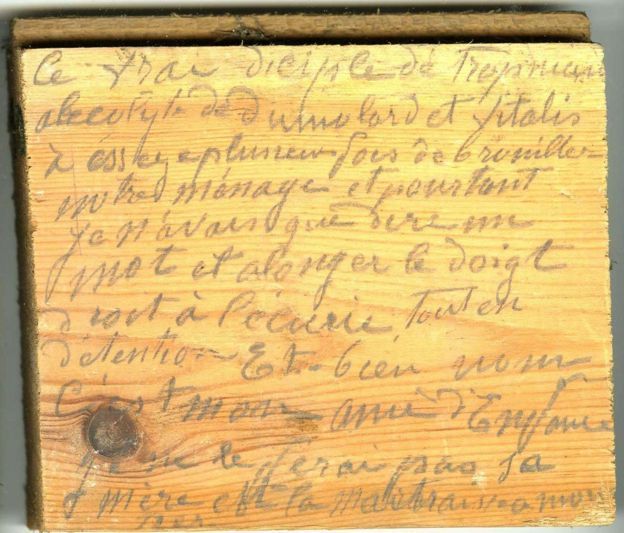 Ce vrai diciple de Tropmann
alecolyte de Dumolard et Vitalis
à ésseye plusieur fois de brouiller
notre ménage et pourtant
je n'avais que dire un
mot et alonger le doigt
droit à l'écurie tout en
détention Et bien nom
C'est mon ami d'Enfance
je ne le ferai pas Sa
mère est la maitraisse a mon
per